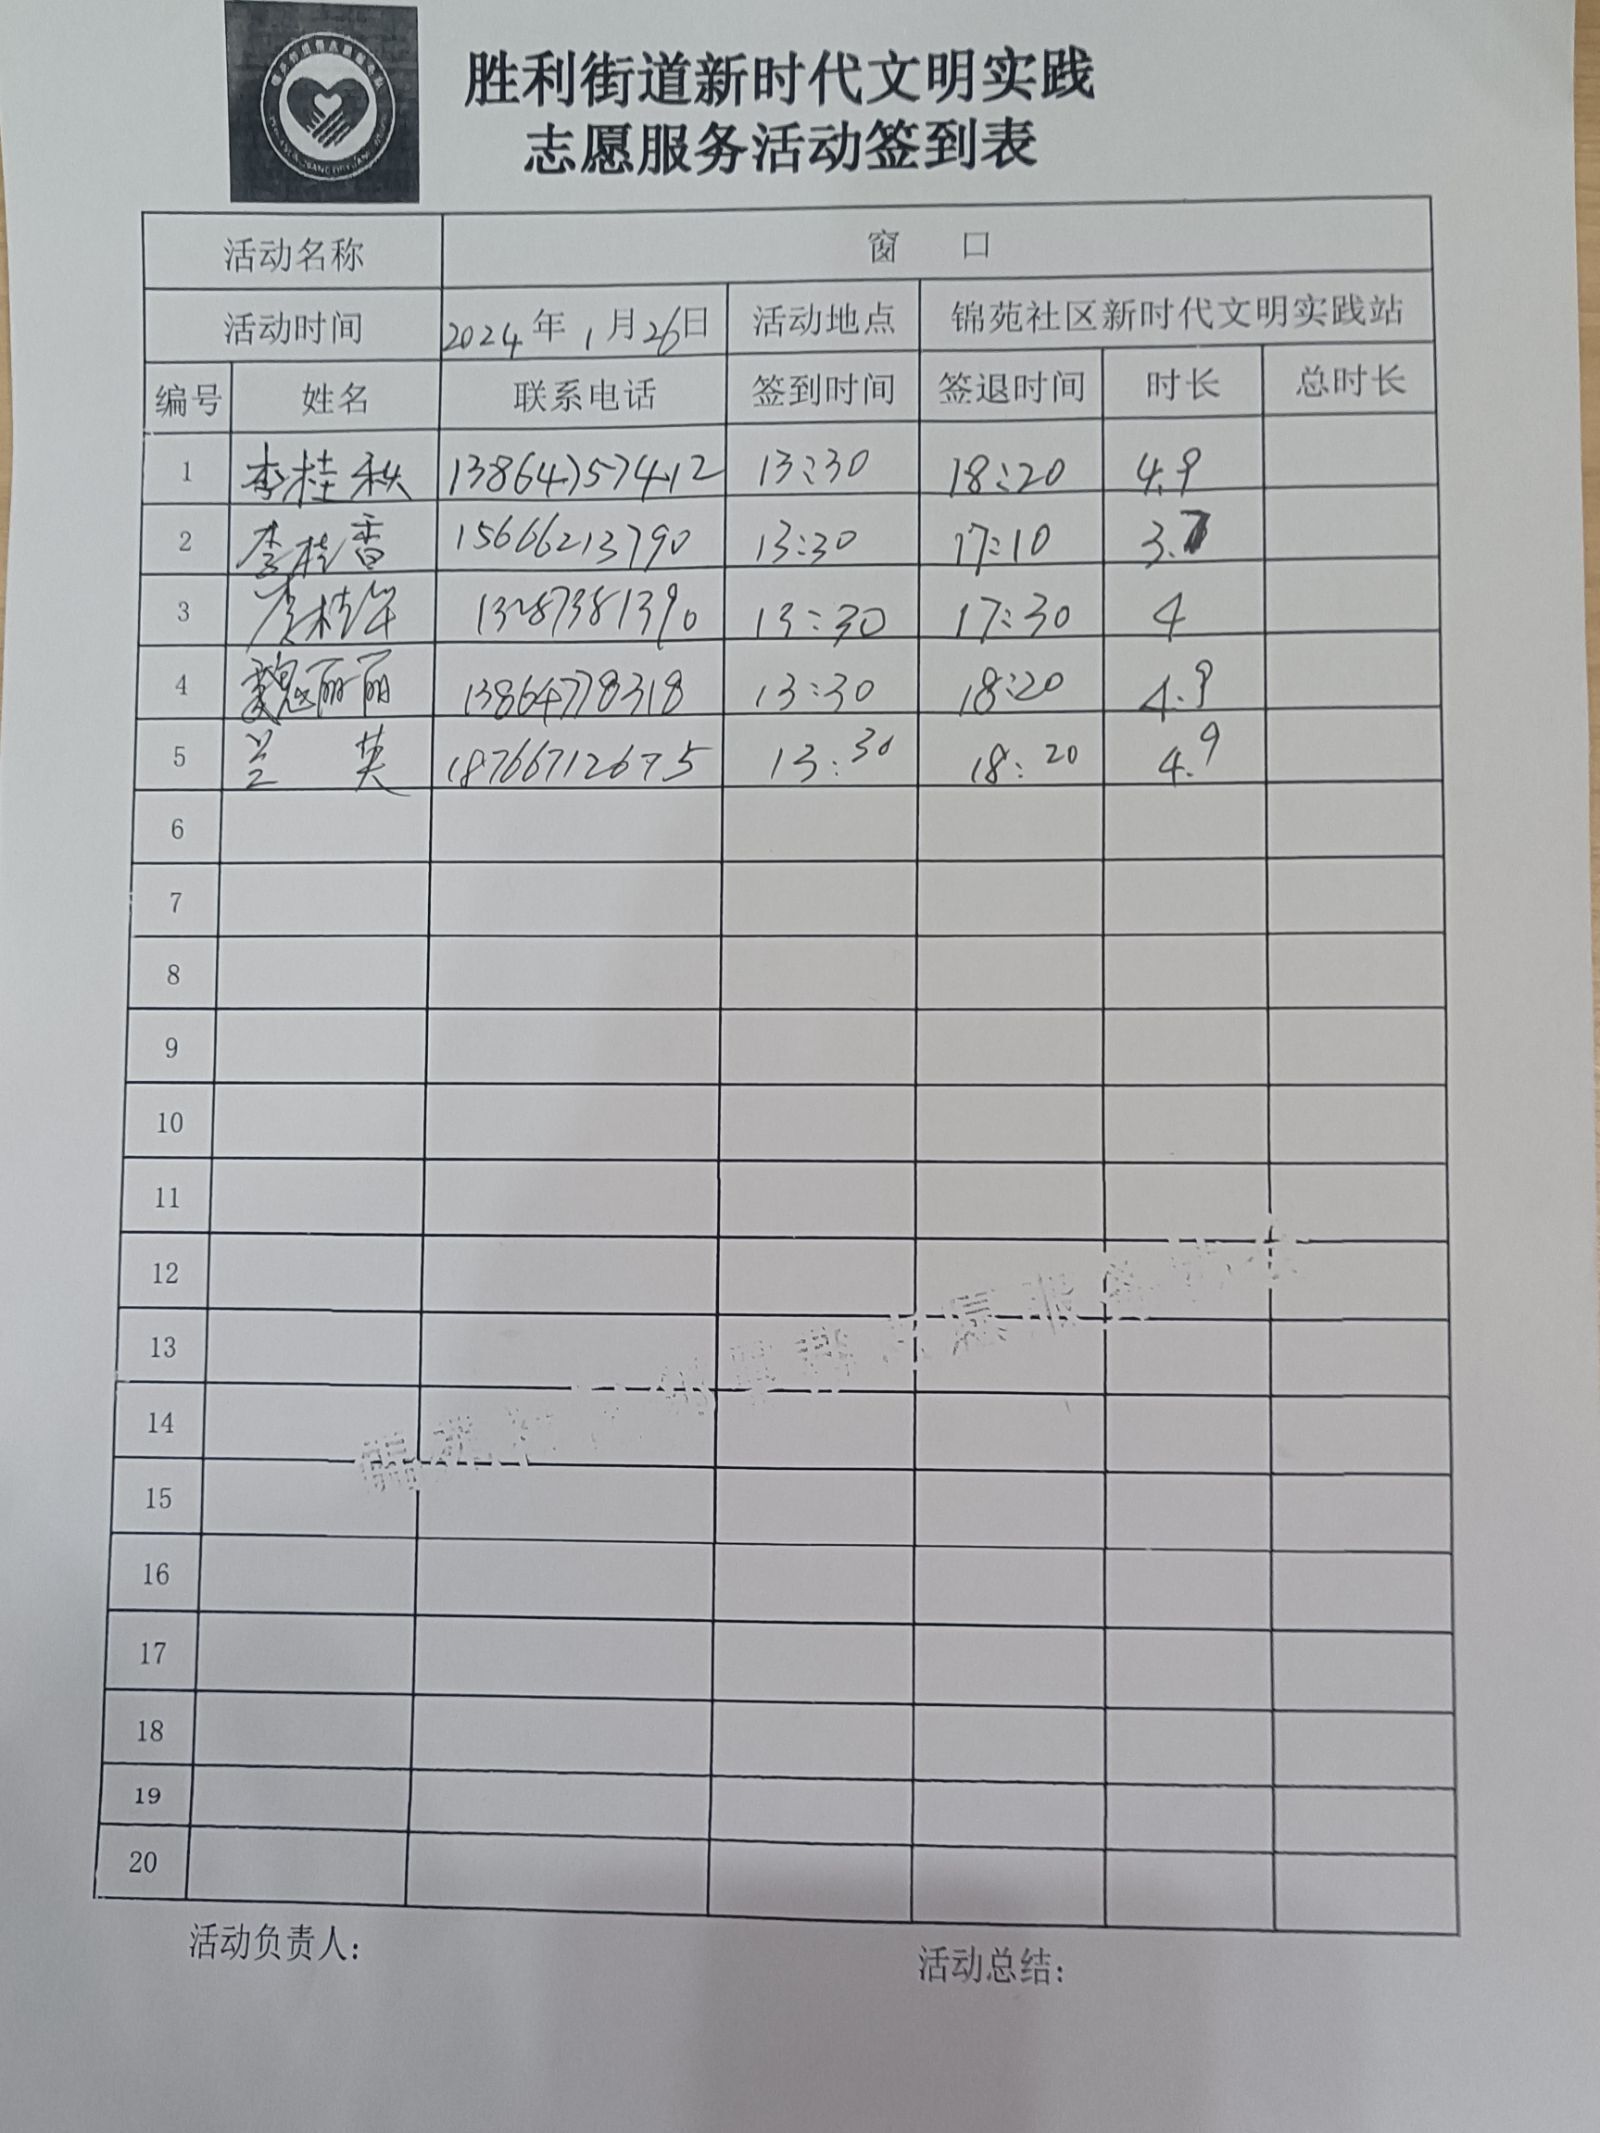 胜利街道新时代文明实践
志愿服务活动签到表
活动名称 窗 口
活动时间 2024年1月26日 活动地点 锦苑社区新时代文明实践站
编号 姓名 联系电话 签到时间 签退时间 时长 总时长
1 李桂秋 13864757412 13:30 18:20 4.9
2 李桂香 15666213790 13:30 17:10 3.7
3 李桂 13287381390 13:30 17:30 4
4 魏丽丽 13864778318 13:30 18:20 4.9
5 兰英 18766712675 13:30 18:20 4.9
6
7
8
9
10
11
12
13
14
15
16
17
18
19
20
活动负责人: 活动总结: